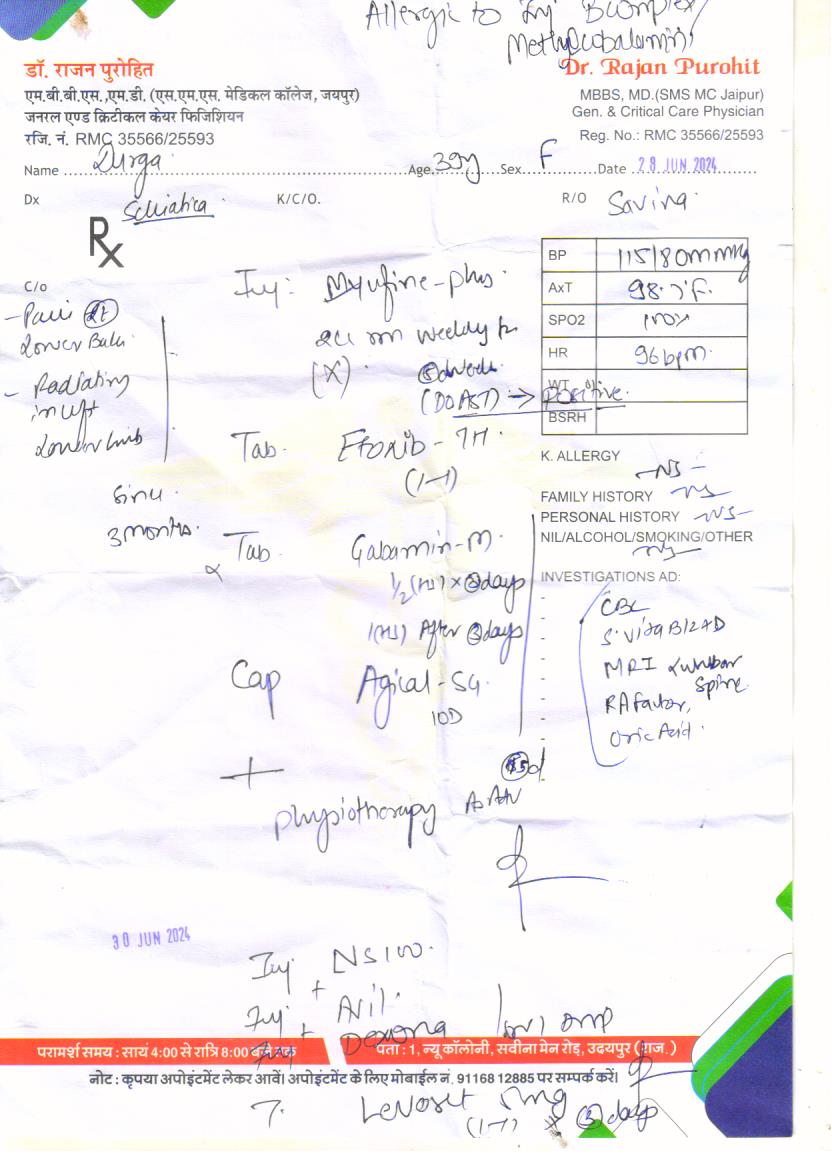 Allergic to Inj Bcomplex/
Methylcobalamin/
डॉ. राजन पुरोहित
एम.बी.बी.एस.,एम.डी. (एस.एम.एस. मेडिकल कॉलेज, जयपुर)
जनरल एण्ड क्रिटीकल केयर फिजिशियन
रजि. नं. RMC 35566/25593
Dr. Rajan Purohit
MBBS, MD.(SMS MC Jaipur)
Gen. & Critical Care Physician
Reg. No.: RMC 35566/25593
Name Durga Age 39y Sex F Date 28 JUN 2024
Dx Sciatica K/C/O. R/O Savina
Rx
BP 115/80mmHg
AxT 98.7F.
SPO2 100%
HR 96bpm.
WT
BSRH
C/o
- Pain
Lower Back
- Radiating
in left
Lower limb
Since
3 months.
Inj: Myufine-plus.
2cc im weekly
(X).
(DOAST) → POSITIVE.
Tab. Etoxib-TH
(1-1)
Tab. Gabamin-M.
1/2 (HS) x days
1(HS) After days
Cap Agical-SG.
10D
+
physiotherapy
K. ALLERGY -NS-
FAMILY HISTORY NS
PERSONAL HISTORY -NS-
NIL/ALCOHOL/SMOKING/OTHER
NS
INVESTIGATIONS AD:
CBC
S. Vita B12 & D
MRI Lumbar
Spine
RA factor,
Uric Acid.
30 JUN 2024
Inj NS100.
+
Inj Avil.
+
Inj Dexona
परामर्श समय : सायं 4:00 से रात्रि 8:00 बजे तक
पता : 1, न्यू कॉलोनी, सवीना मेन रोड़, उदयपुर (राज.)
नोट : कृपया अपोइंटमेंट लेकर आवें। अपोइंटमेंट के लिए मोबाईल नं. 91168 12885 पर सम्पर्क करें।
T. Levocet 5mg
(1-1) x days